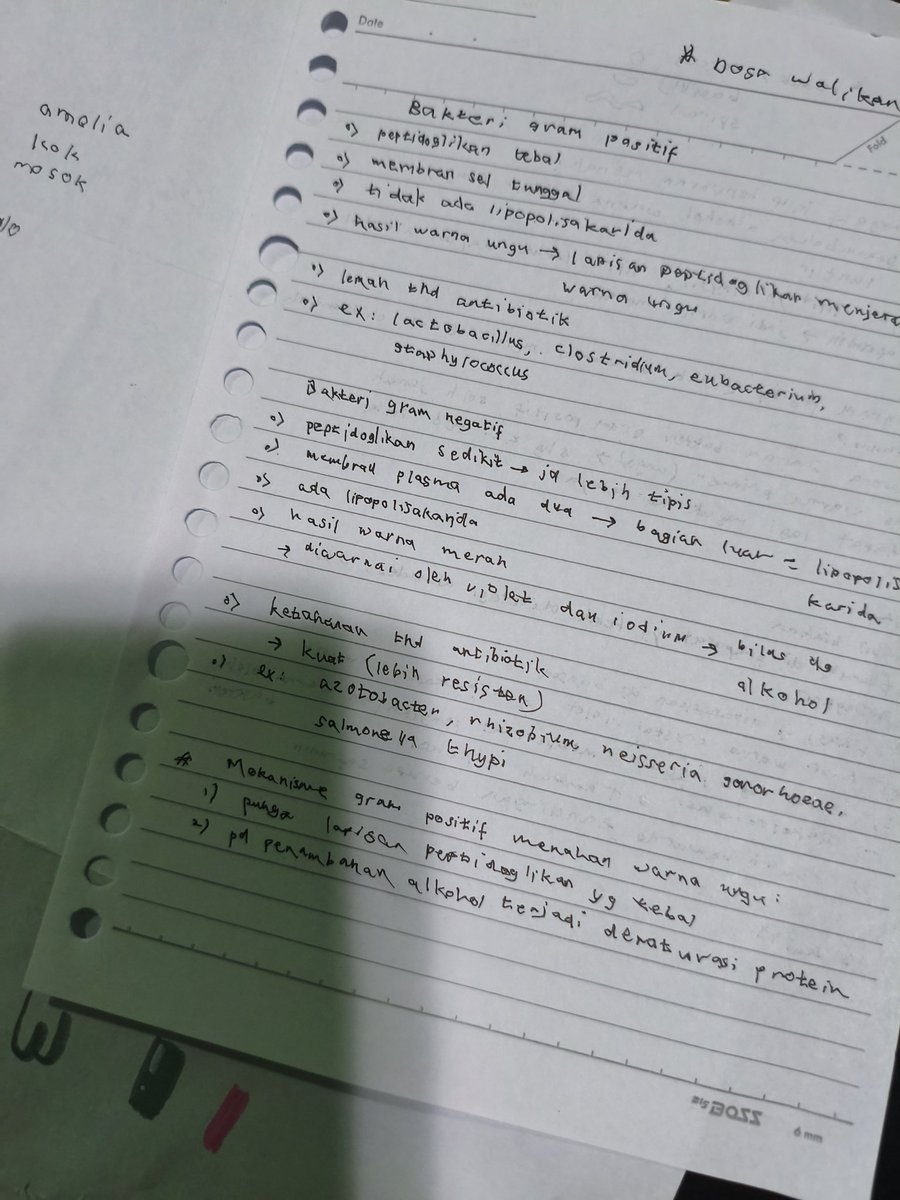 Date
* Dosa walikan
Fold
amolia
Isok
mosok
Bakteri gram positif
°) peptidoglikan tebal
°) membran sel tunggal
°) tidak ada lipopolisakarida
°) hasil warna ungu → lapisan peptidoglikan menjera
warna ungu
°) lemah thd antibiotik
°) ex: lactobacillus, clostridium, eubacterium,
staphylococcus
Bakteri gram negatif
°) peptidoglikan sedikit → jd lebih tipis
°) membran plasma ada dua → bagian luar = lipopolis
karida
°) ada lipopolisakarida
°) hasil warna merah
→ diwarnai oleh violet dan iodium → bilas dg
alkohol
°) ketahanan thd antibiotik
→ kuat (lebih resisten)
°) ex: azotobacter, rhizobium, neisseria gonorhoeae,
salmonella thypi
* Mekanisme gram positif menahan warna ungu:
1) punya lapisan peptidoglikan yg tebal
2) pd penambahan alkohol terjadi denaturasi protein
6mm